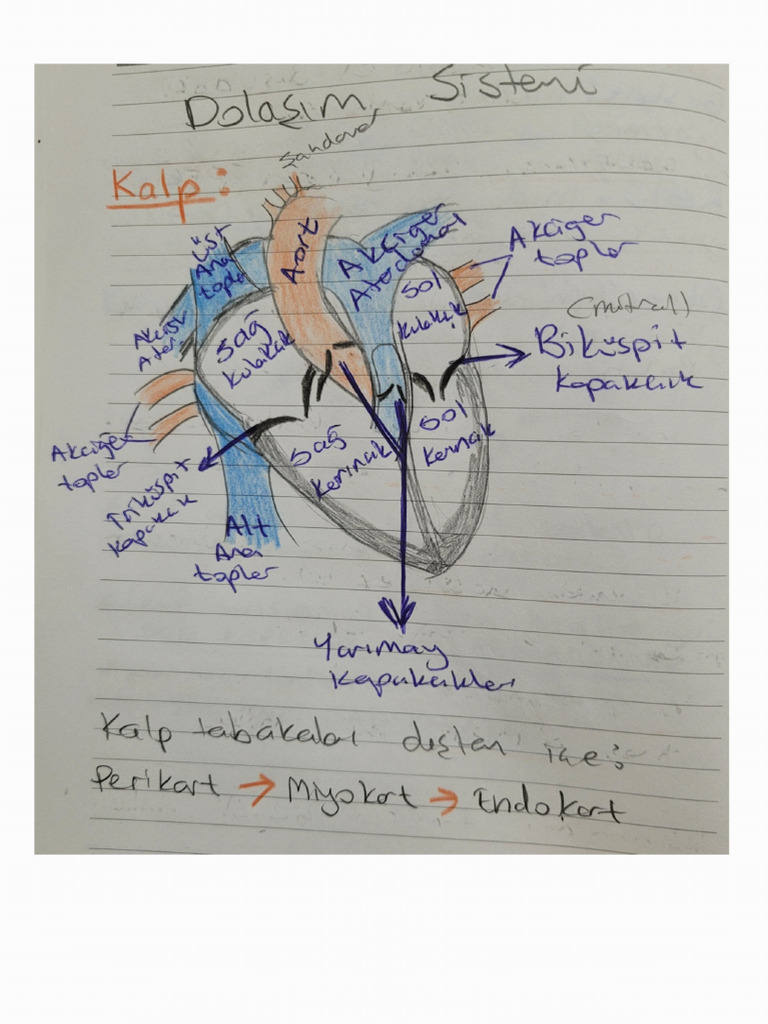 Dolaşım Sistemi
Kalp:
Şandamar
Üst
Ana
topler
Aort
Akciğer
Aterdamal
Akciğer
topler
Akciğer
Ateri
Sağ
kulakcık
Sol
kulakcık
(mitral)
Biküspit
kapakcık
Akciğer
topler
Triküspit
kapakcık
Sağ
kerıncık
Sol
kerıncık
Alt
Ana
topler
Yarımay
kapakcıkleri
Kalp tabakaları dıştan içe:
Perikart → Miyokart → Endokart